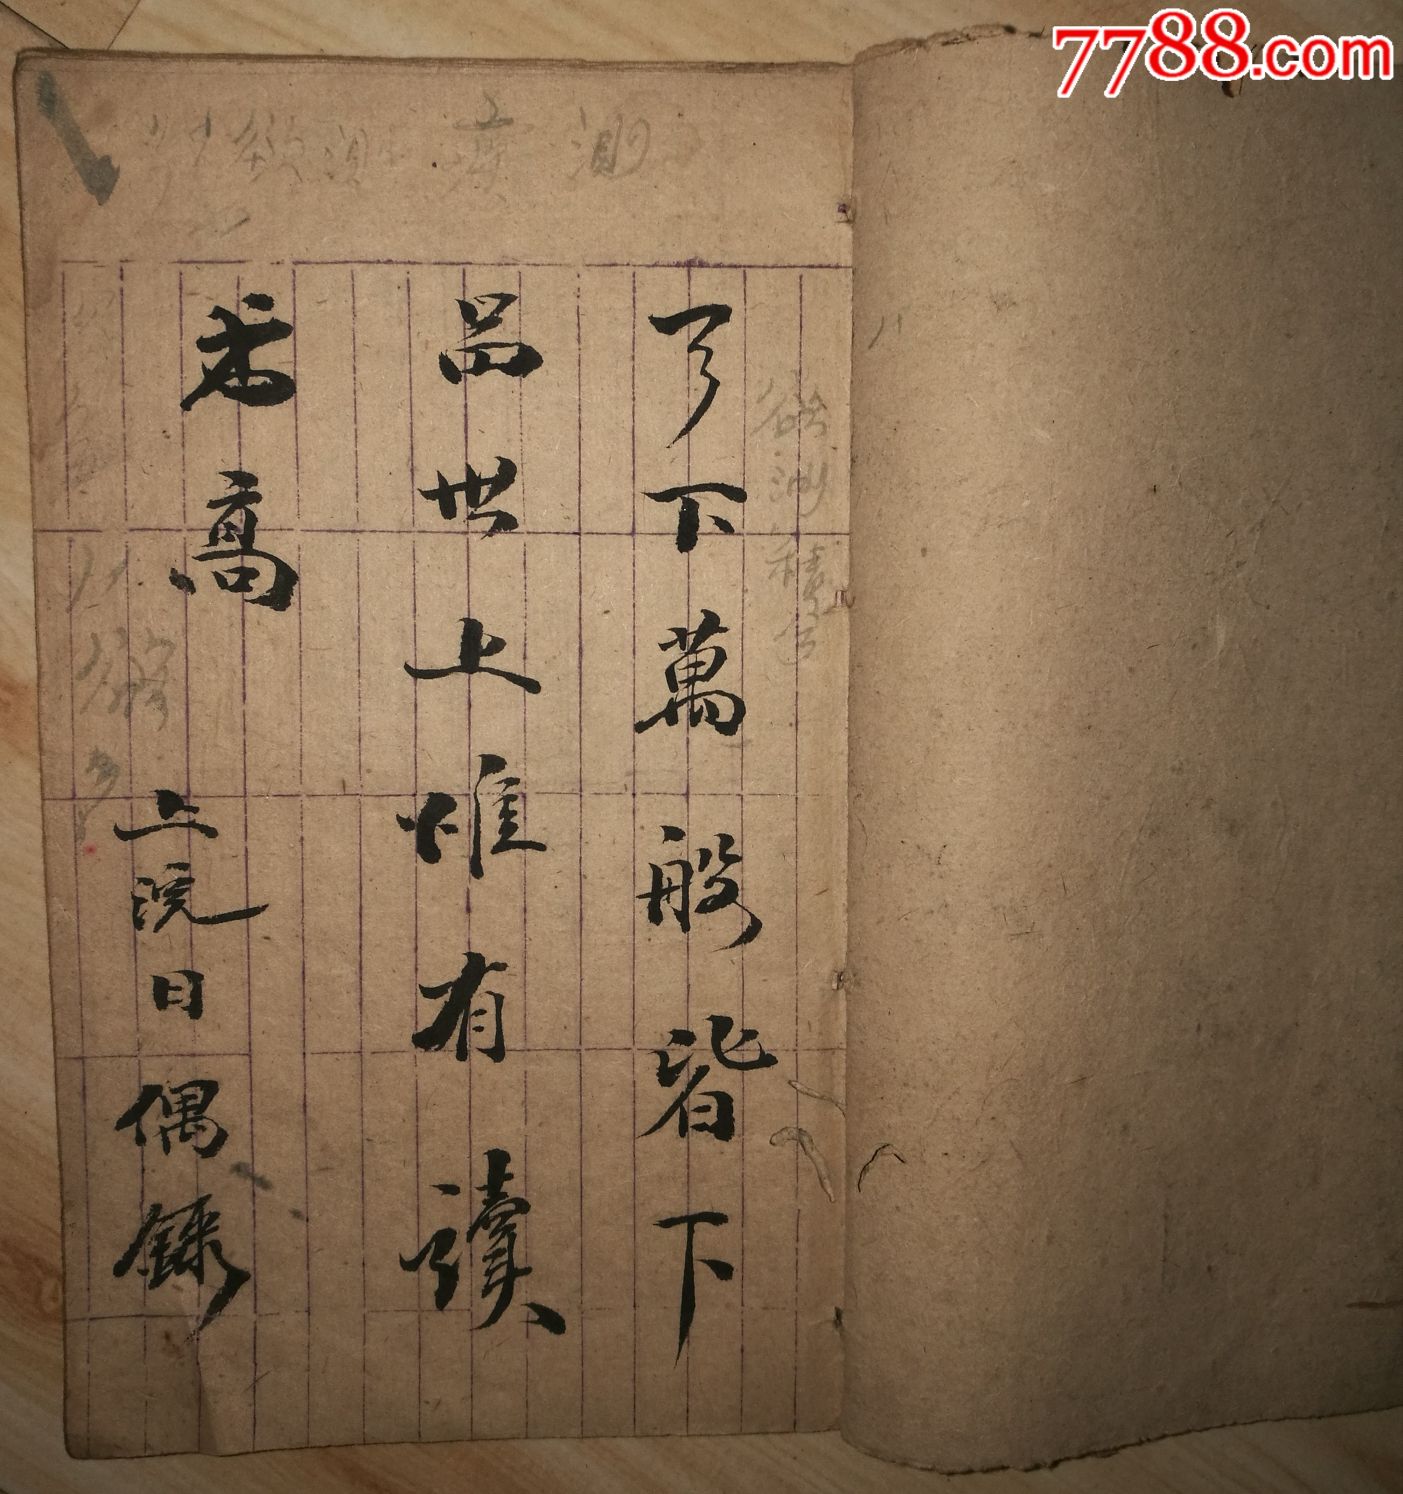 7788.com
天下萬般皆下
品世上惟有讀
書高
上浣日偶錄